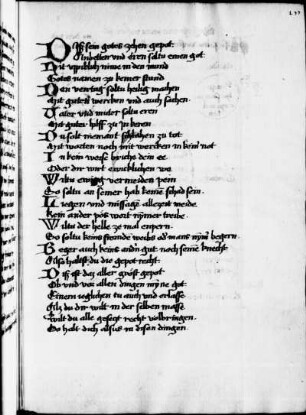 Diß sein gotes zehen gepot
Anbetten und eren saltu einen got
Nit üpiklich nime in den mund
Gotes namen zu keiner stund
Den veirtag saltu heilig machen
Mit guten wercken und auch sachen
Vater und muter saltu eren
Mit guter hilff zu in keren
Du solt niemant schlahen zu tot
Mit worten noch mit wercken in keiner not
In kein weise briche dein ee
Oder dir wirt ewiklichen we
Wiltu ewige vermeiden pein
So saltu an keiner hab keine schad sein
Liegen und missage allezeit meide
Kein ander pös wort nymer treibe
Wiltu der helle ze mal enpern
So saltu keins frömde weibs od mans nyme begern
Beger auch keins andn gut noch seine knecht
Also haltest du die gepot recht
Diß ist daz aller gröst gepot
Ob und vor allen dingen myne got
Einem iglichen tu auch und erlasse
Als du dir wilt in der selben masse
Wilt du alle gesetz recht volbringen
So halt dich alsus in disen dingen